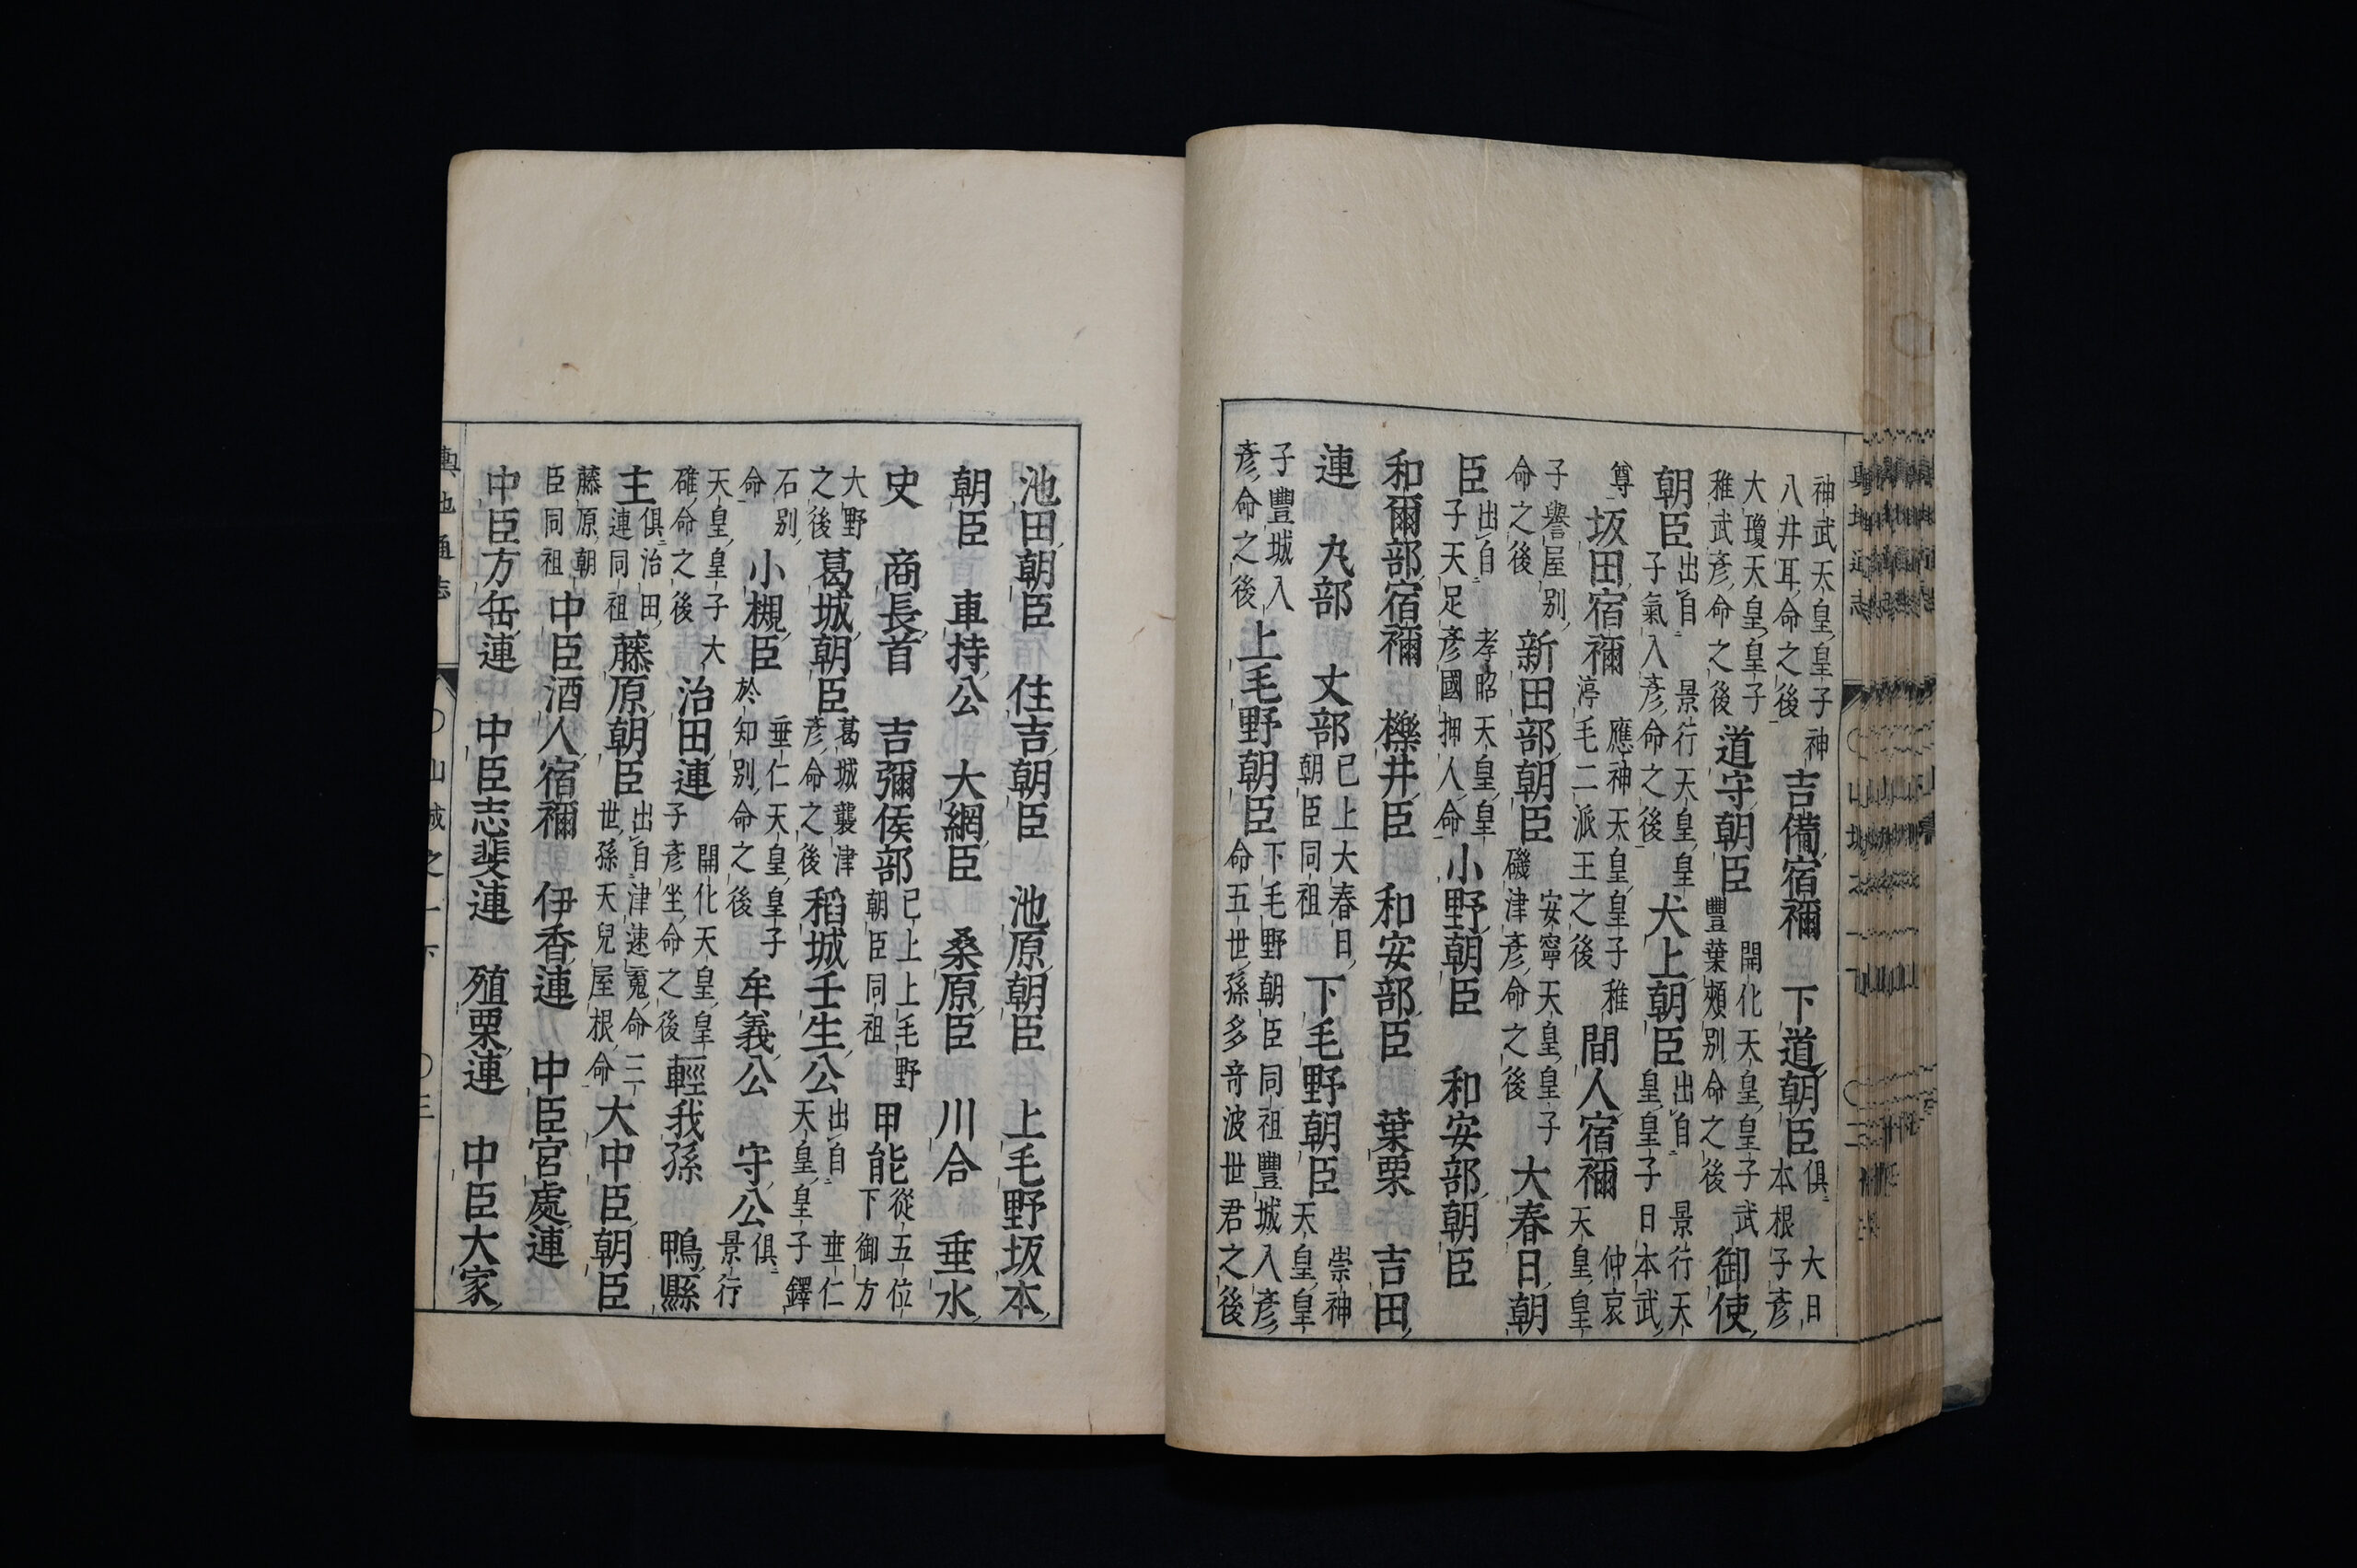 神武天皇皇子神
八井耳命之後
吉備宿禰　下道朝臣
俱大日
本根子彥
大瓊天皇皇子
稚武彥命之後
道守朝臣
開化天皇皇子武
豐葉頰別命之後
御使
朝臣
出自景行天皇皇
子氣入彥命之後
犬上朝臣
出自景行天
皇皇子日本武
尊
坂田宿禰
應神天皇皇子稚
渟毛二派王之後
間人宿禰
仲哀
天皇皇
子譽屋別
命之後
新田部朝臣
安寧天皇皇子
磯津彥命之後
大春日朝
臣
出自孝昭天皇皇
子天足彥國押人命
小野朝臣　和安部朝臣
和爾部宿禰　櫟井臣　和安部臣　葉栗　吉田
連　丸部　丈部
已上大春日
朝臣同祖
下毛野朝臣
崇神
天皇皇
子豐城入
彥命之後
上毛野朝臣
下毛野朝臣同祖豐城入彥
命五世孫多奇波世君之後
池田朝臣　住吉朝臣　池原朝臣　上毛野坂本
朝臣　車持公　大網臣　桑原臣　川合　垂水
史　商長首　吉彌侯部
已上上毛野
朝臣同祖
甲能
從五位
下御方
大野
之後
葛城朝臣
葛城襲津
彥命之後
稻城壬生公
出自垂仁
天皇皇子鐸
石別
命
小槻臣
垂仁天皇皇子
於知別命之後
牟義公　守公
俱
景行
天皇皇子大
碓命之後
治田連
開化天皇皇
子彥坐命之後
輕我孫　鴨縣
主
俱治田
連同祖
藤原朝臣
出自津速魂命三
世孫天兒屋根命
大中臣朝臣
藤原朝
臣同祖
中臣酒人宿禰　伊香連　中臣宮處連
中臣方岳連　中臣志斐連　殖栗連　中臣大家